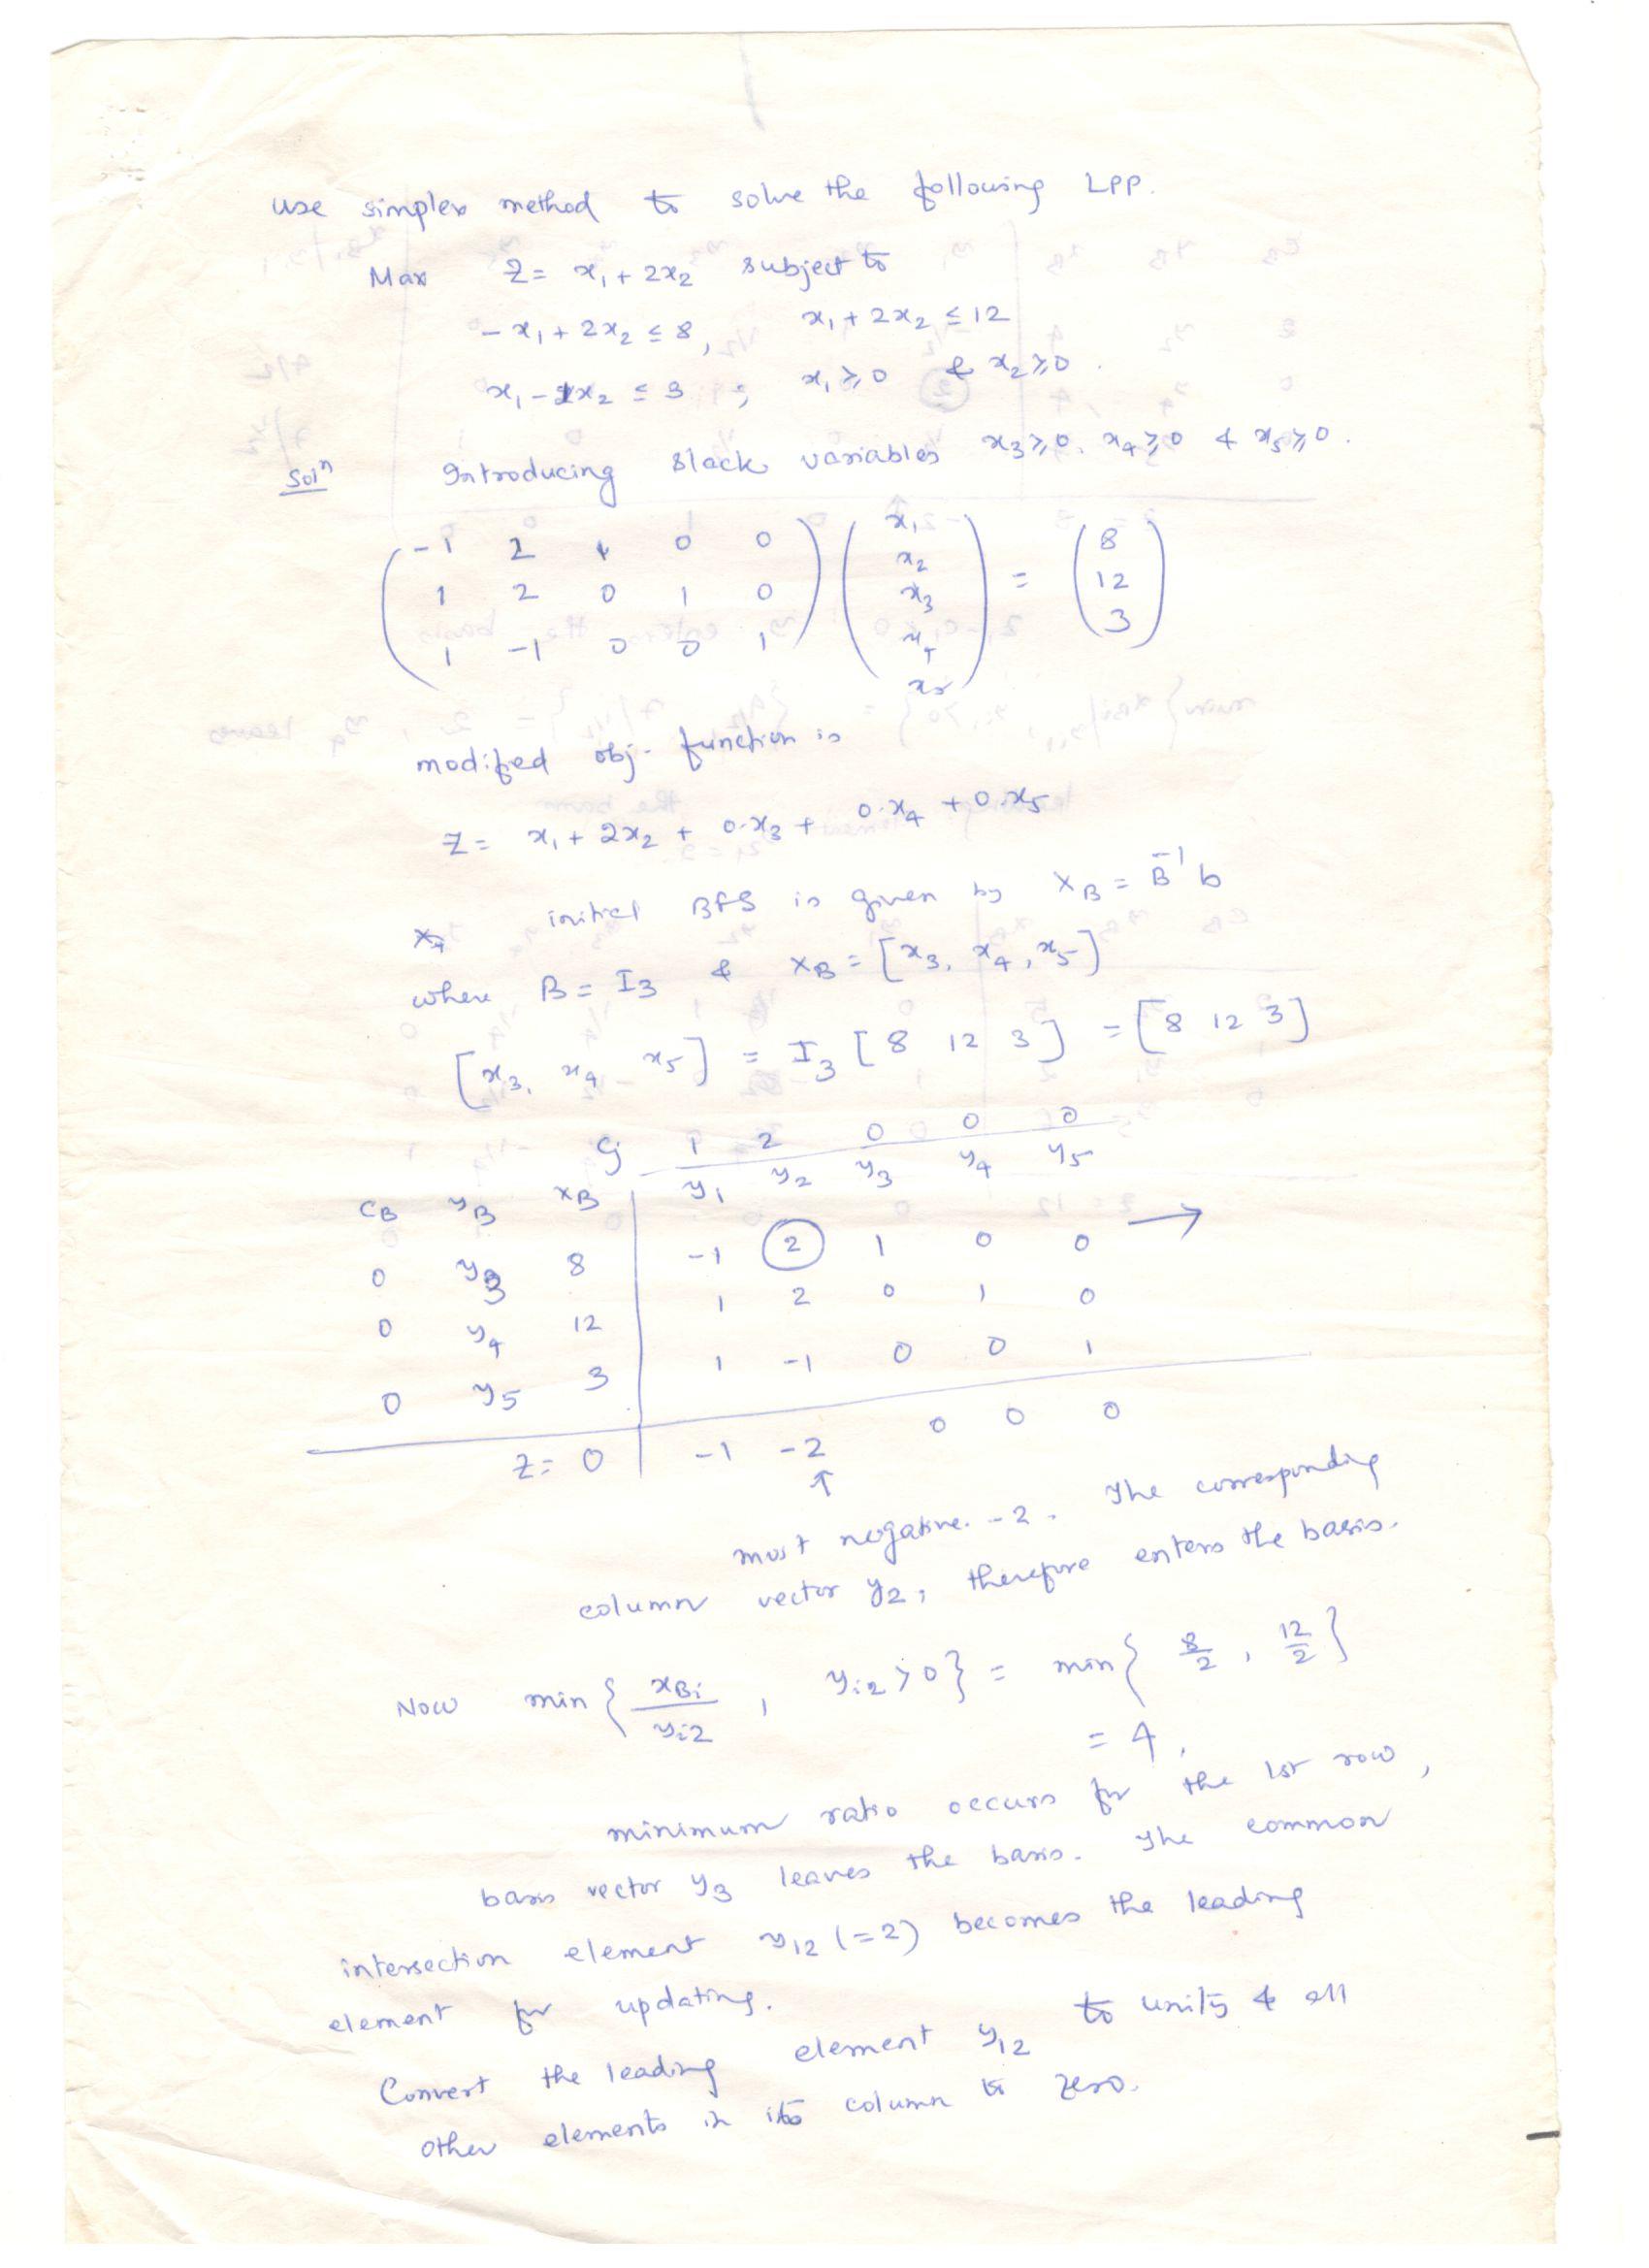 Use simplex method to solve the following LPP.
Max Z = x₁ + 2x₂ subject to
-x₁ + 2x₂ ≤ 8, x₁ + 2x₂ ≤ 12
x₁ - x₂ ≤ 3 ; x₁ ≥ 0 & x₂ ≥ 0.
Solⁿ Introducing slack variables x₃ ≥ 0, x₄ ≥ 0 & x₅ ≥ 0.
-1 2 1 0 0 x₁ 8
1 2 0 1 0 x₂ = 12
1 -1 0 0 1 x₃ 3
x₄
x₅
modified obj. function is
Z = x₁ + 2x₂ + 0.x₃ + 0.x₄ + 0.x₅
initial BFS is given by X_B = B⁻¹ b
where B = I₃ & X_B = [x₃, x₄, x₅]
[x₃, x₄ x₅] = I₃ [8 12 3] = [8 12 3]
Cj 1 2 0 0 0
C_B y_B x_B y₁ y₂ y₃ y₄ y₅
0 y₃ 8 -1 2 1 0 0 →
0 y₄ 12 1 2 0 1 0
0 y₅ 3 1 -1 0 0 1
Z = 0 -1 -2 0 0 0
↑
most negative. -2. The corresponding
column vector y₂, therefore enters the basis.
Now min { x_Bi / y_i2 , y_i2 > 0 } = min { 8/2 , 12/2 }
= 4,
minimum ratio occurs for the 1st row,
basis vector y₃ leaves the basis. The common
intersection element y₁₂ (=2) becomes the leading
element for updating.
Convert the leading element y₁₂ to unity & all
other elements in its column to zero.